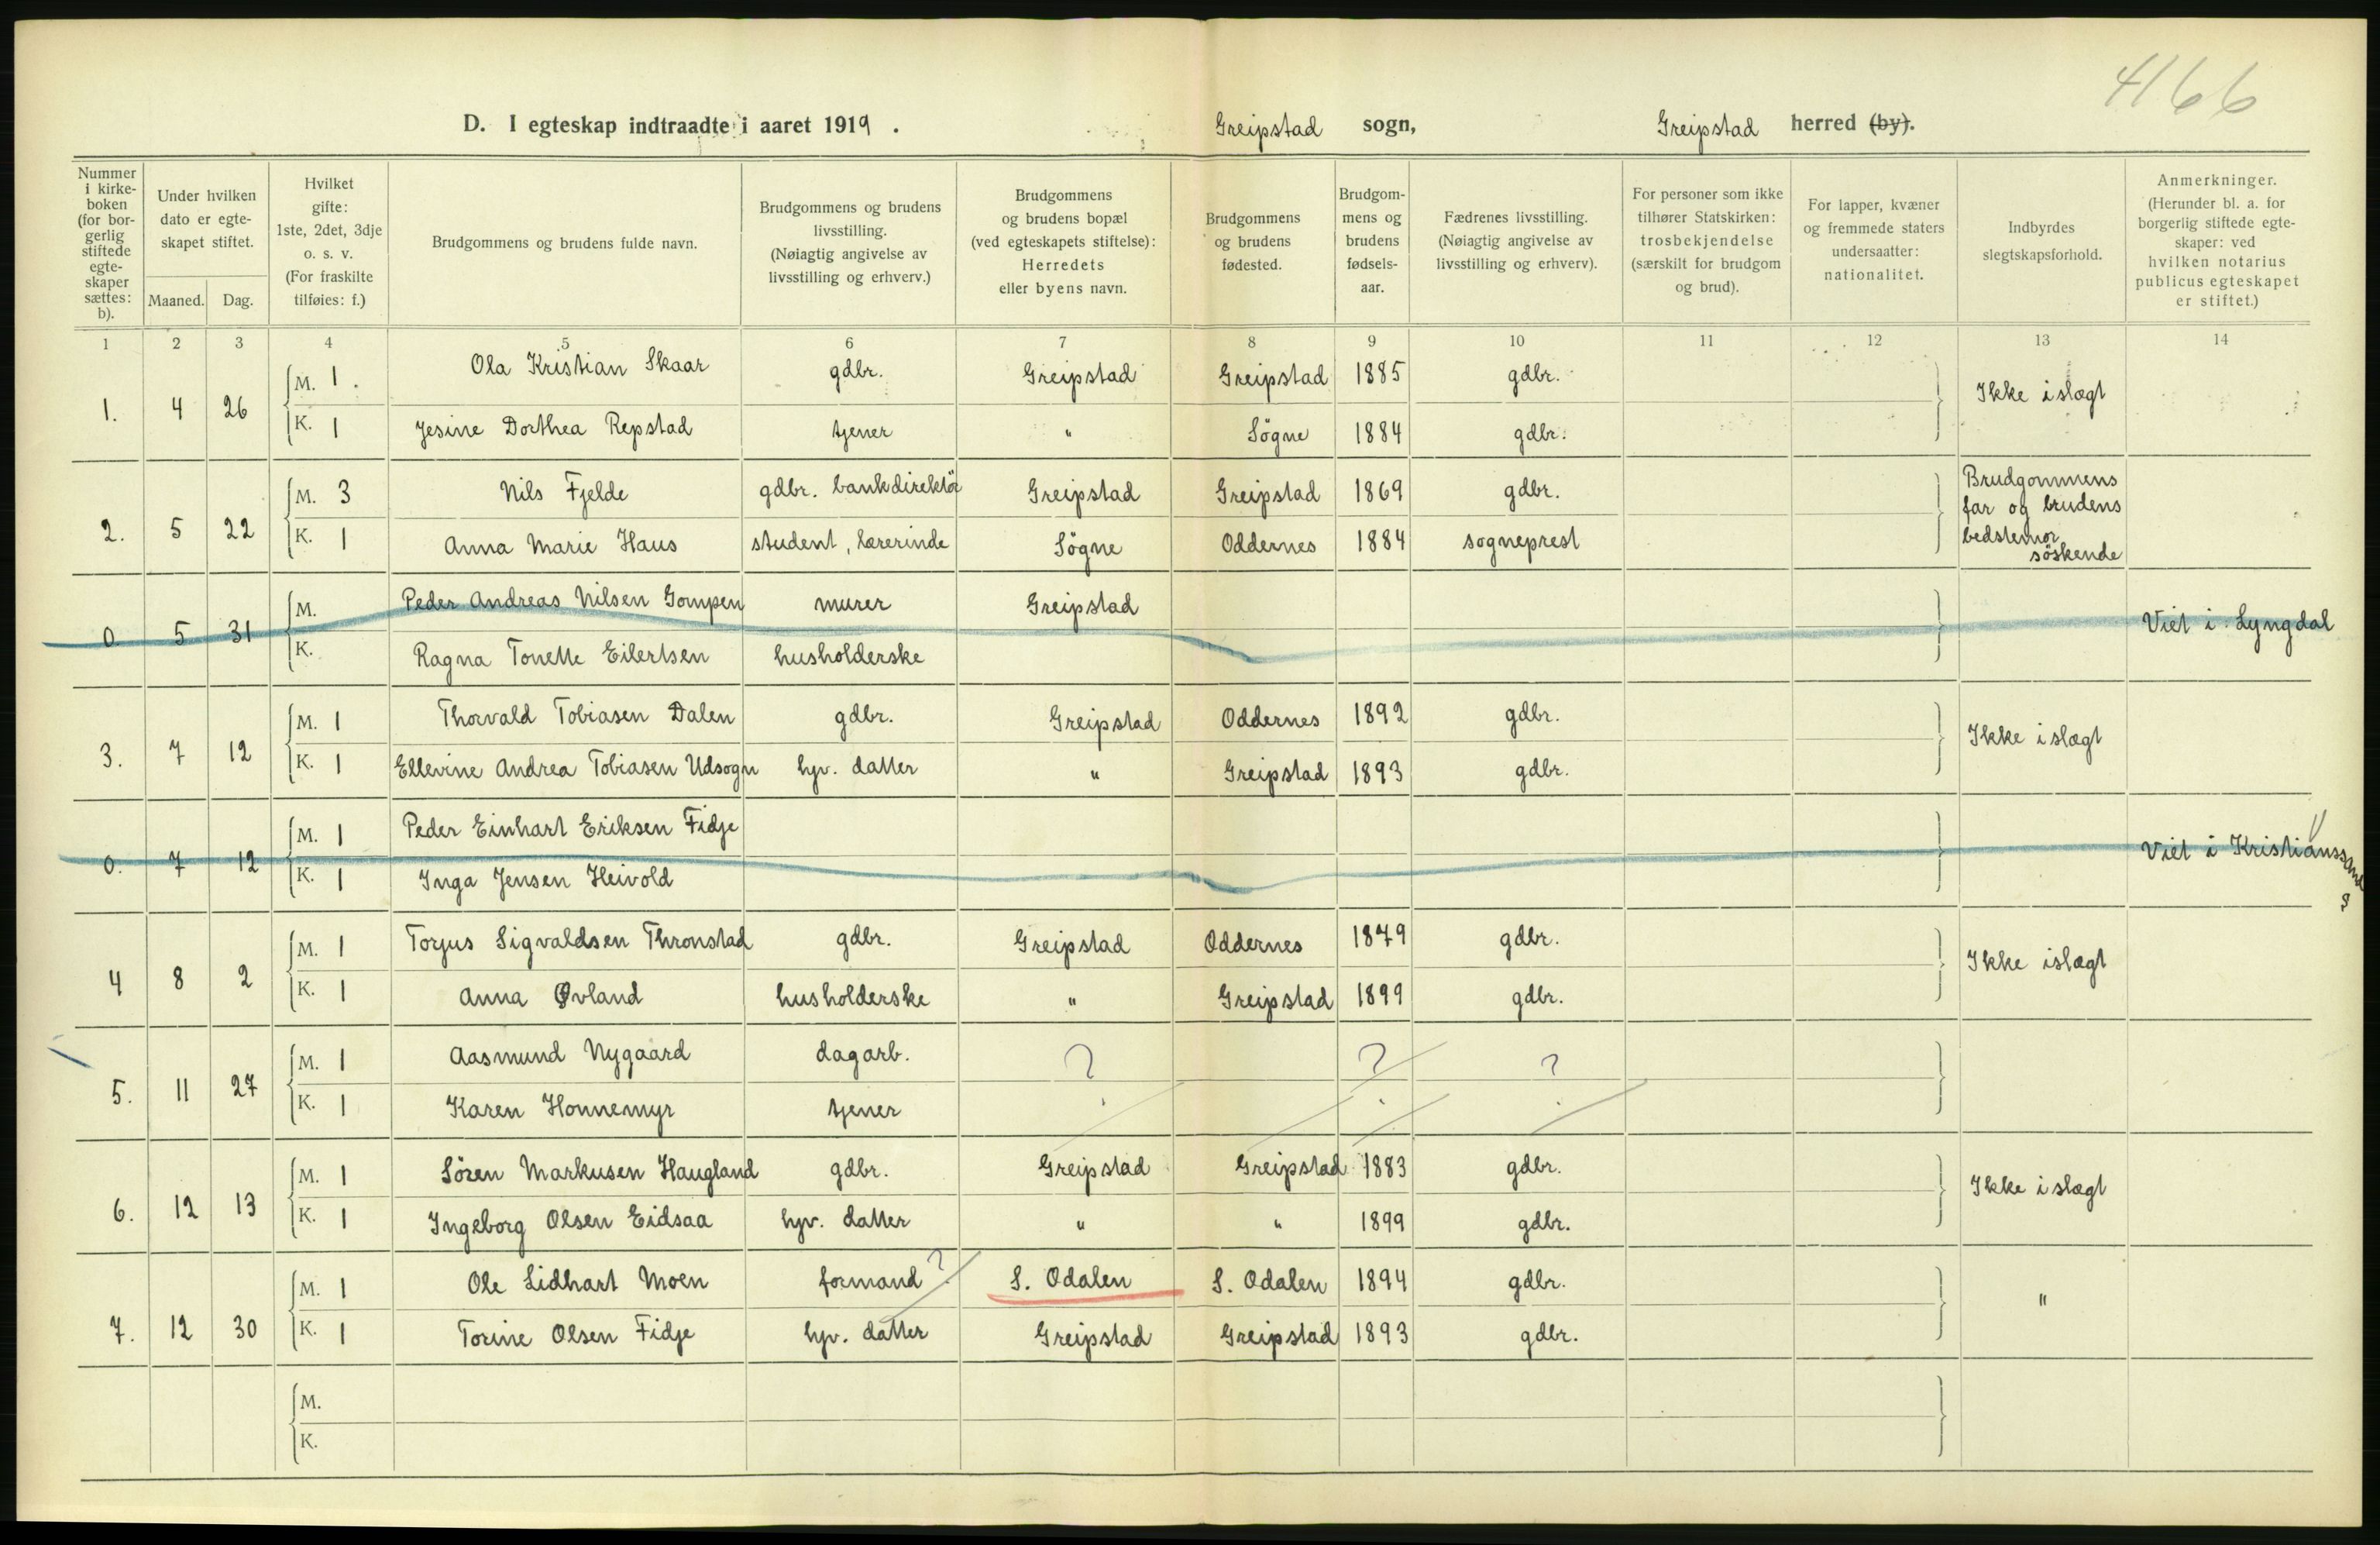 4166
D. I egteskap indtraadte i aaret 1919. Greipstad sogn, Greipstad herred (by).
Nummer i kirke-boken (for bor-gerlig stiftede egte-skaper sættes: b).
Under hvilken dato er egte-skapet stiftet.
Maaned. Dag.
Hvilket gifte: 1ste, 2det, 3dje o. s. v. (For fraskilte tilføies: f.)
Brudgommens og brudens fulde navn.
Brudgommens og brudens livsstilling. (Nøiagtig angivelse av livsstilling og erhverv.)
Brudgommens og brudens bopæl (ved egteskapets stiftelse): Herredets eller byens navn.
Brudgommens og brudens fødested.
Brudgom-mens og brudens fødsels-aar.
Fædrenes livsstilling. (Nøiagtig angivelse av livsstilling og erhverv).
For personer som ikke tilhører Statskirken: trosbekjendelse (særskilt for brudgom og brud).
For lapper, kvæner og fremmede staters undersaatter: nationalitet.
Indbyrdes slegtskapsforhold.
Anmerkninger. (Herunder bl. a. for borgerlig stiftede egte-skaper: ved hvilken notarius publicus egteskapet er stiftet.)
1 2 3 4 5 6 7 8 9 10 11 12 13 14
M. 1. Ola Kristian Skaar gdbr. Greipstad Greipstad 1885 gdbr.
1. 4 26 Ikke i slægt
K. 1 Jesine Dorthea Repstad tjener " Søgne 1884 gdbr.
M. 3 Nils Fjelde gdbr. bankdirektør Greipstad Greipstad 1869 gdbr.
2. 5 22 Brudgommens far og brudens bedstemor søskende
K. 1 Anna Marie Haus student, lærerinde Søgne Oddernes 1884 sogneprest
M. Peder Andreas Nilsen Gompen murer Greipstad
0 5 31 Viet i Lyngdal
K. Ragna Tonette Eilertsen husholderske
M. 1 Thorvald Tobiasen Dalen gdbr. Greipstad Oddernes 1892 gdbr.
3. 7 12 Ikke i slægt
K. 1 Ellevine Andrea Tobiasen Udsogn hjv. datter " Greipstad 1893 gdbr.
M. 1 Peder Einhart Eriksen Fidje
0. 7 12 Viet i Kristianssand S
K. 1 Inga Jensen Heivold
M. 1 Torjus Sigvaldsen Thronstad gdbr. Greipstad Oddernes 1879 gdbr.
4 8 2 Ikke islægt
K. 1 Anna Øvland husholderske " Greipstad 1899 gdbr.
M. 1 Aasmund Nygaard dagarb. ? ? ?
5. 11 27
K. 1 Karen Honnemyr tjener
M. 1 Sören Markusen Haugland gdbr. Greipstad Greipstad 1883 gdbr.
6. 12 13 Ikke i slægt
K. 1 Ingeborg Olsen Eidsaa hjv. datter " " 1899 gdbr.
M. 1 Ole Lidhart Moen formand ? S. Odalen S. Odalen 1894 gdbr.
7. 12 30 "
K. 1 Torine Olsen Fidje hjv. datter Greipstad Greipstad 1893 gdbr.
M.
K.